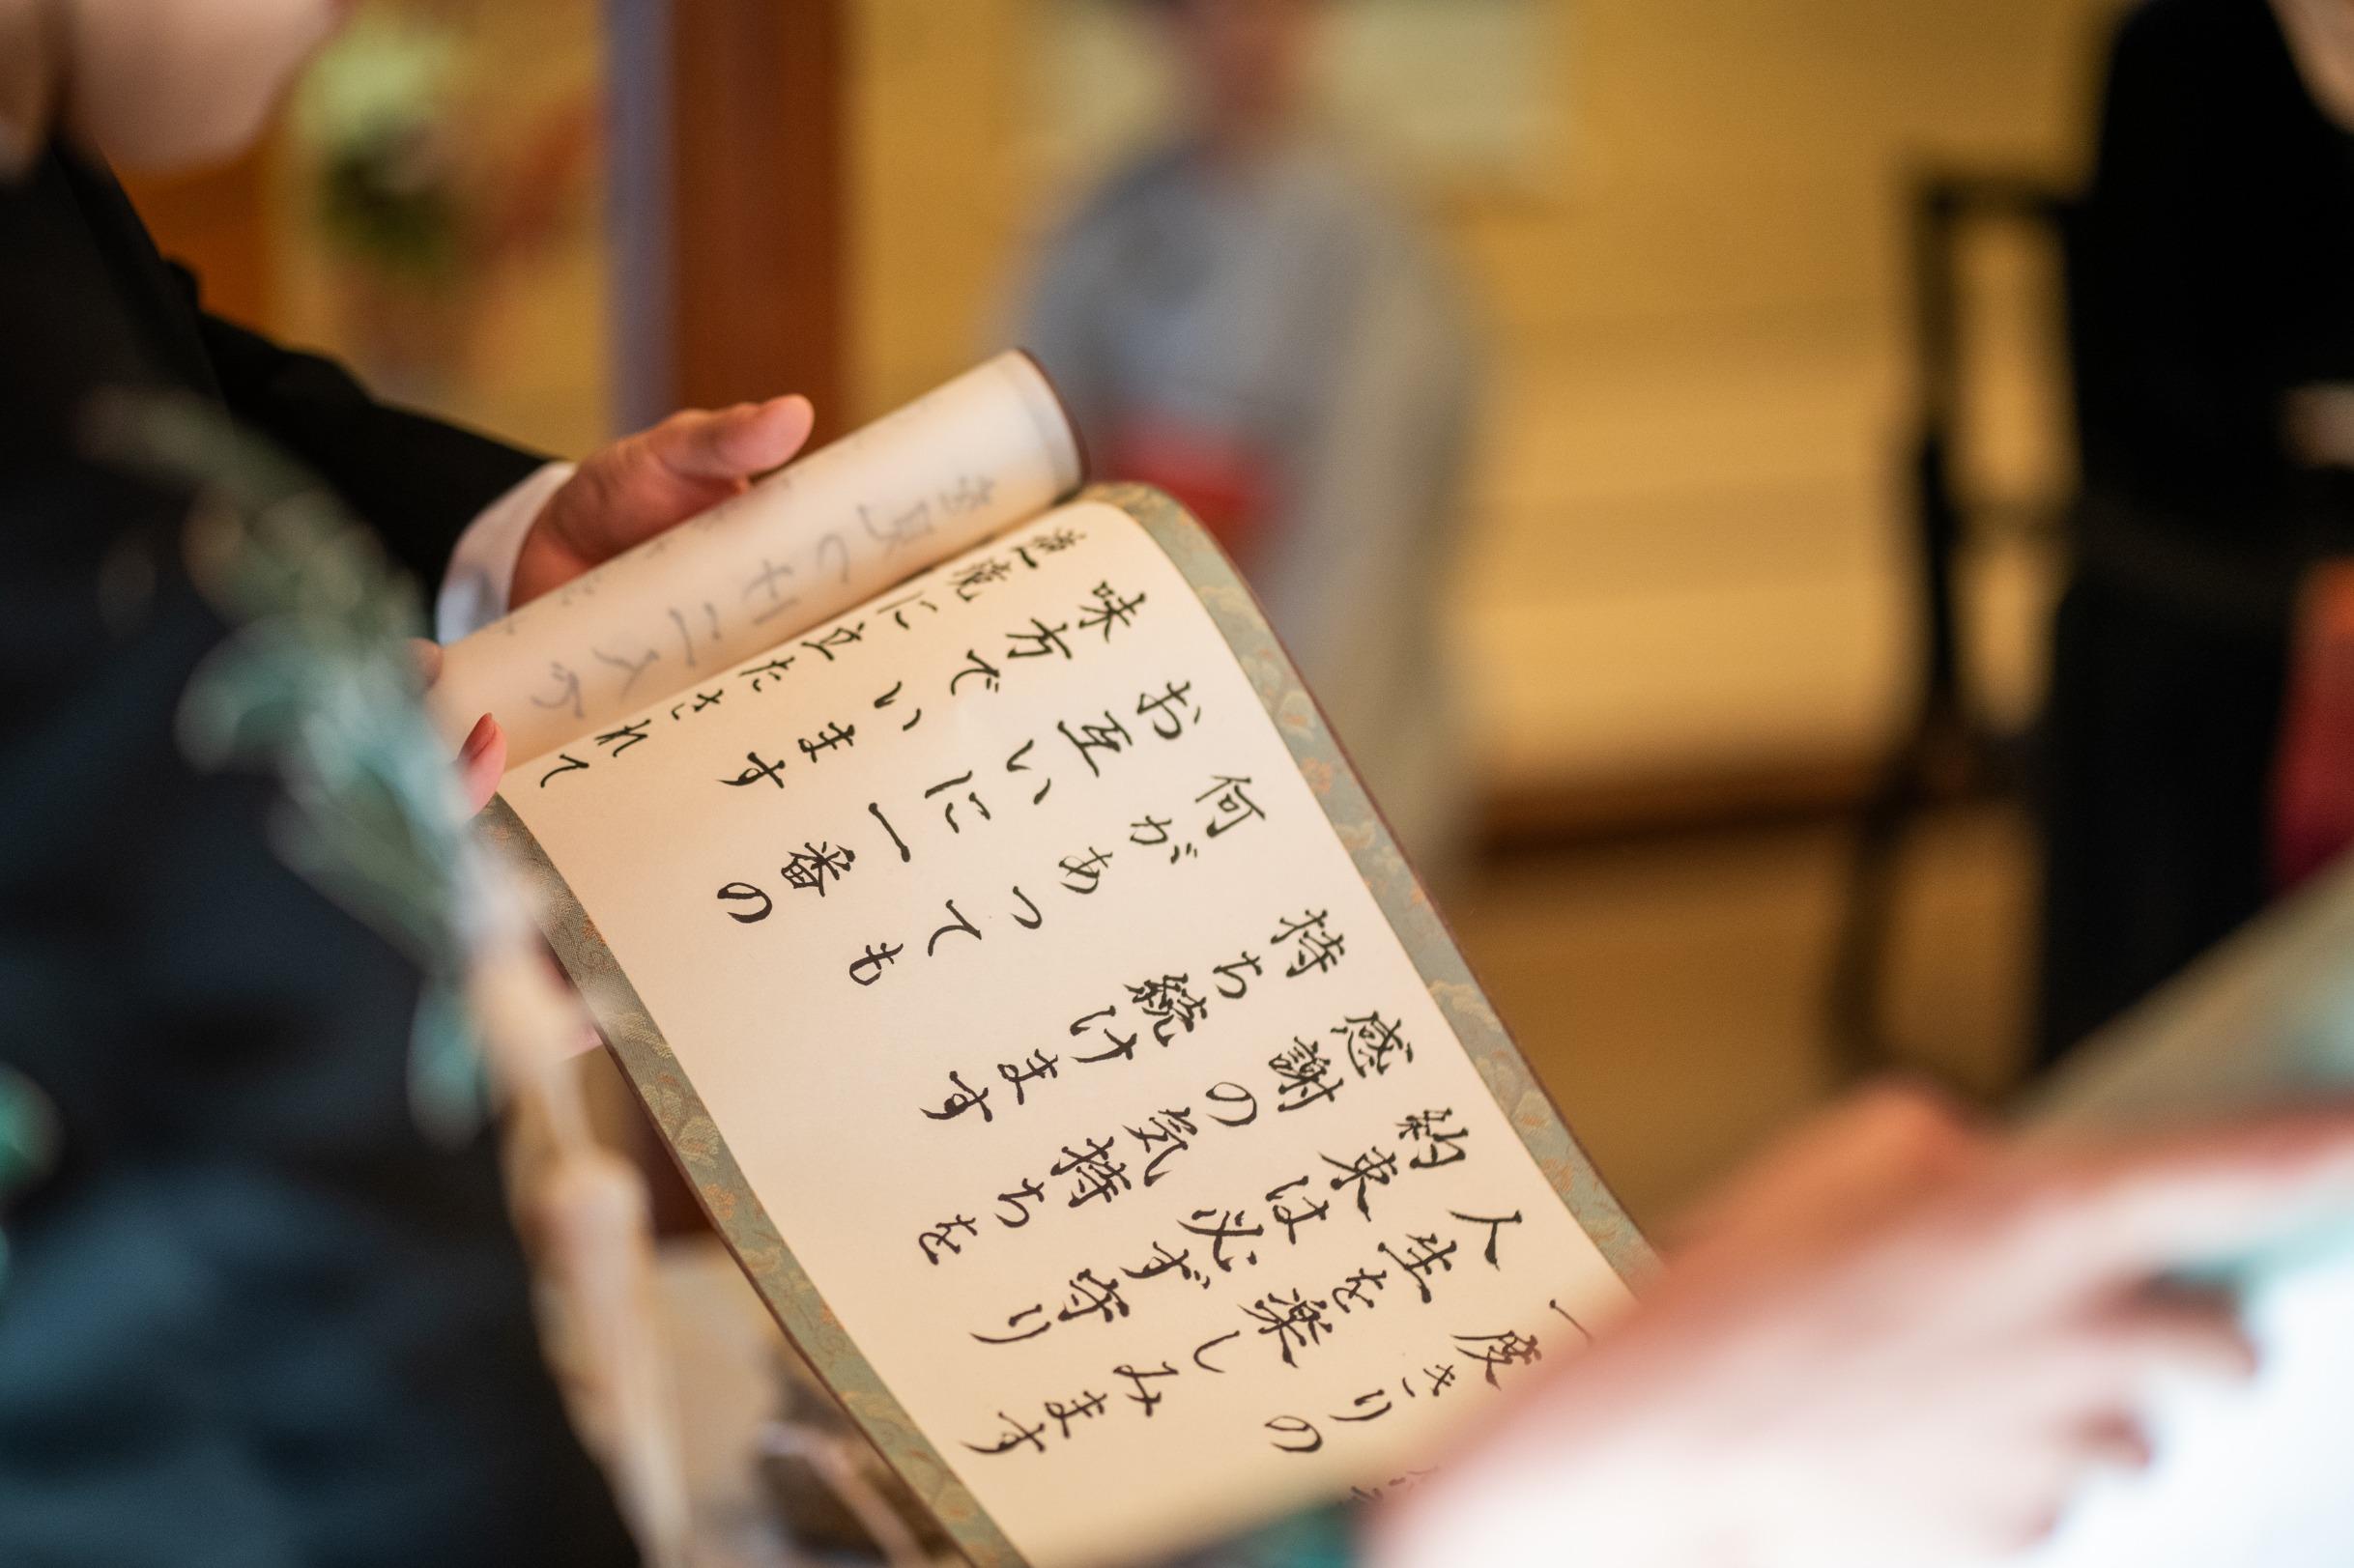 一度きりの
人生を楽しみます
約束は必ず守り
感謝の気持ちを
持ち続けます
何があっても
お互いに一番の
味方でいます
に立たされて